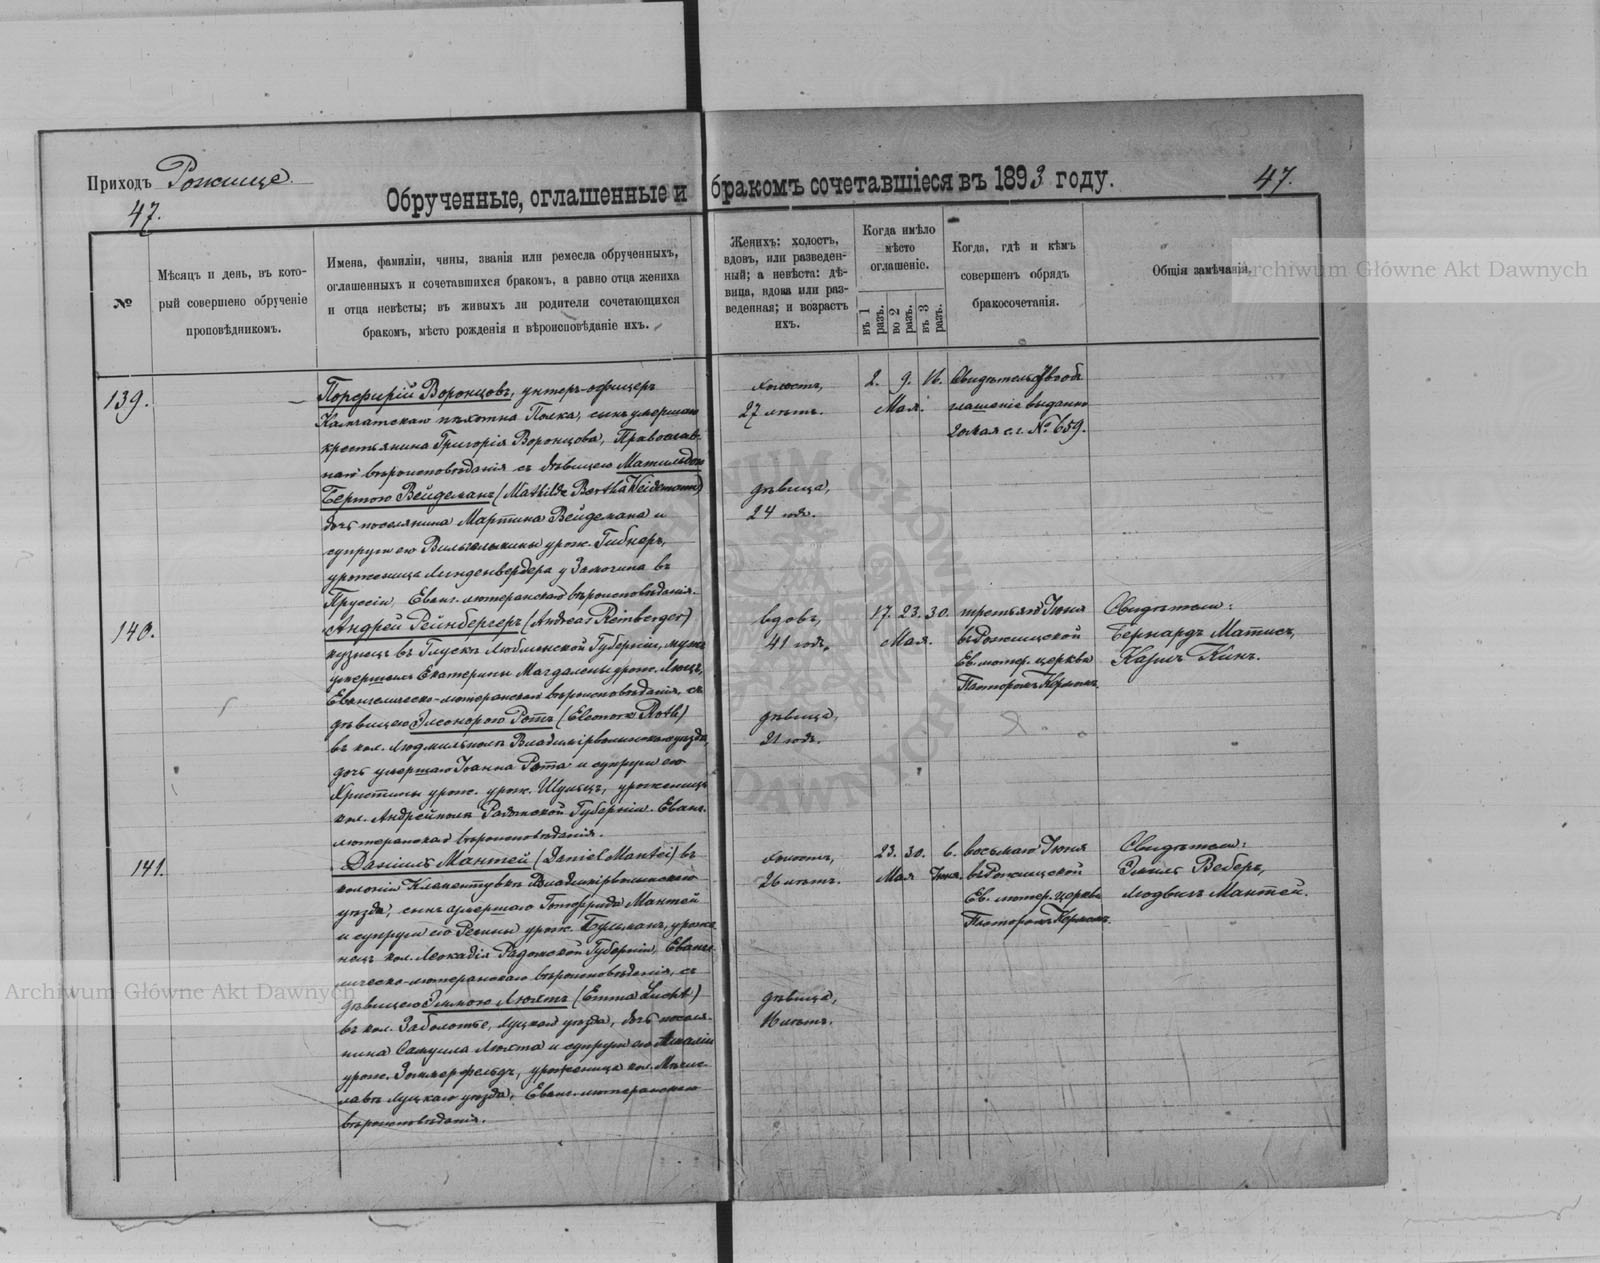 Приходъ Рожище.
47.
Обрученные, оглашенные и бракомъ сочетавшіеся въ 1893 году.
47.
№
Мѣсяцъ и день, въ кото-
рый совершено обрученіе
проповѣдникомъ.
Имена, фамиліи, чины, званія или ремесла обрученныхъ,
оглашенныхъ и сочетавшихся бракомъ, а равно отца жениха
и отца невѣсты; въ живыхъ ли родители сочетающихся
бракомъ, мѣсто рожденія и вѣроисповѣданіе ихъ.
Женихъ: холостъ,
вдовъ, или разведен-
ный; а невѣста: дѣ-
вица, вдова или раз-
веденная; и возрастъ
ихъ.
Когда имѣло
мѣсто
оглашеніе.
въ 1 разъ.
во 2 разъ.
въ 3 разъ.
Когда, гдѣ и кѣмъ
совершенъ обрядъ
бракосочетанія.
Общія замѣчанія.
139.
Порфирій Воронцовъ, унтеръ-офицеръ
Камчатскаго пѣхотна Полка, сынъ умершаго
крестьянина Григорія Воронцова, Православ-
наго вѣроисповѣданія съ дѣвицею Матильдою
Бертою Вейдеманъ (Mathilde Bertha Weidemann)
дочь поселянина Мартина Вейдемана и
супруги его Вильгельмины урож. Гибнеръ,
уроженица Линденвердера у Замочина въ
Пруссіи, Еванг. лютеранскаго вѣроисповѣданія.
холостъ,
27 лѣтъ.
дѣвица,
24 года.
2. 9. 16.
Мая.
Свидѣтельство объ
глашеніе выданно
20 мая с.г. № 659.
140.
Андрей Рейнбергеръ (Andreas Reinberger)
кузнецъ въ Глускъ Люблинской Губерніи, мужъ
умершей Екатерины Магдалены урож. Люцъ,
Евангелическо-лютеранскаго вѣроисповѣданія, съ
дѣвицею Элеонорою Ротъ (Eleonore Roth)
въ кол. Людмильполь Владимірволынскаго уѣзда,
дочь умершаго Іоанна Рота и супруги его
Христины урож. урож. Шульцъ, уроженица
кол. Андрейполь Радомской Губерніи. Еванг.
лютеранскаго вѣроисповѣданія.
вдовъ,
41 годъ,
дѣвица,
21 годъ.
17. 23. 30.
Мая.
третьяго Іюня
въ Рожищской
Ев. лютер. церкви
Пасторомъ Кермомъ.
Свидѣтели:
Бернардъ Матисъ,
Карлъ Кинъ.
141.
Даніилъ Мантей (Daniel Mantei) въ
колоніи Клементувкѣ Владимірволынскаго
уѣзда, сынъ умершаго Готфрида Мантей
и супруги его Регины урож. Бульманъ, уроже-
нецъ кол. Леокадія Радомской Губерніи, Еванге-
лическо-лютеранскаго вѣроисповѣданія, съ
дѣвицею Эммою Люхтъ (Emma Lucht)
въ кол. Заболотье, Луцкаго уѣзда, дочь поселя-
нина Самуила Люхта и супруги его Амаліи
урож. Зоммерфельдъ, уроженица кол. Мечис-
лавъ Луцкаго уѣзда, Еванг. лютеранскаго
вѣроисповѣданія.
холостъ,
26 лѣтъ.
дѣвица,
16 лѣтъ.
23. 30. 6.
Мая Іюня.
восьмаго Іюня
въ Рожищской
Ев. лютер. церкви
Пасторомъ Кермомъ.
Свидѣтели:
Эмиль Веберъ,
Людвигъ Мантей.
Archiwum Główne Akt Dawnych
Archiwum Główne Akt Dawnych